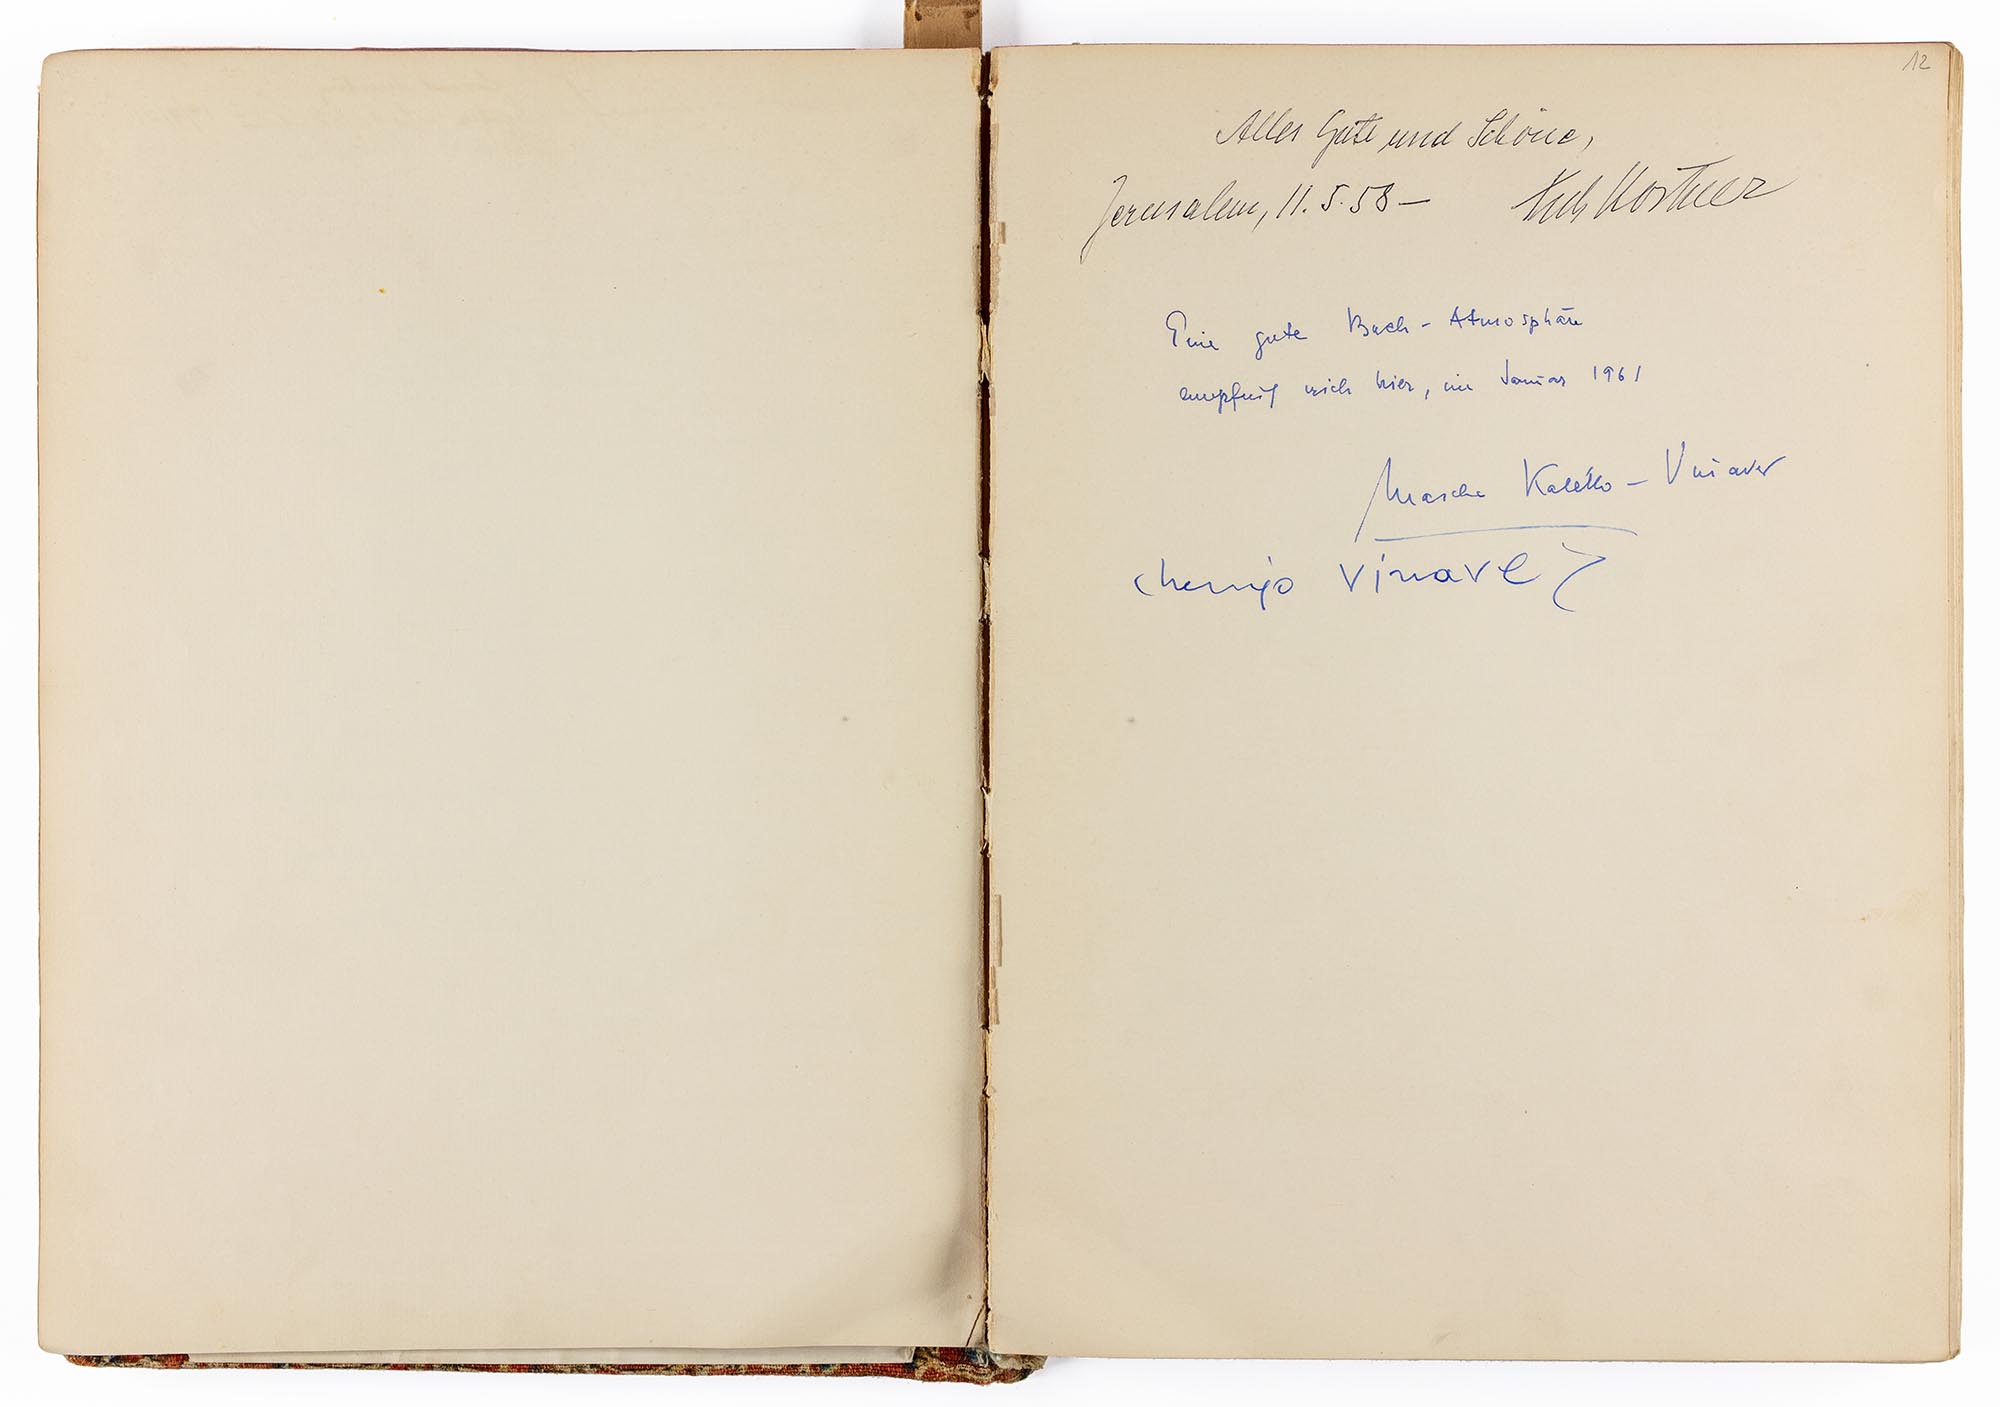 12
Alles Gute und Schöne,
Jerusalem, 11. 5. 58 –
Eine gute Buch - Atmosphäre
empfing mich hier, im Januar 1961
Mascha Kaléko – Vinaver
Chemjo Vinaver